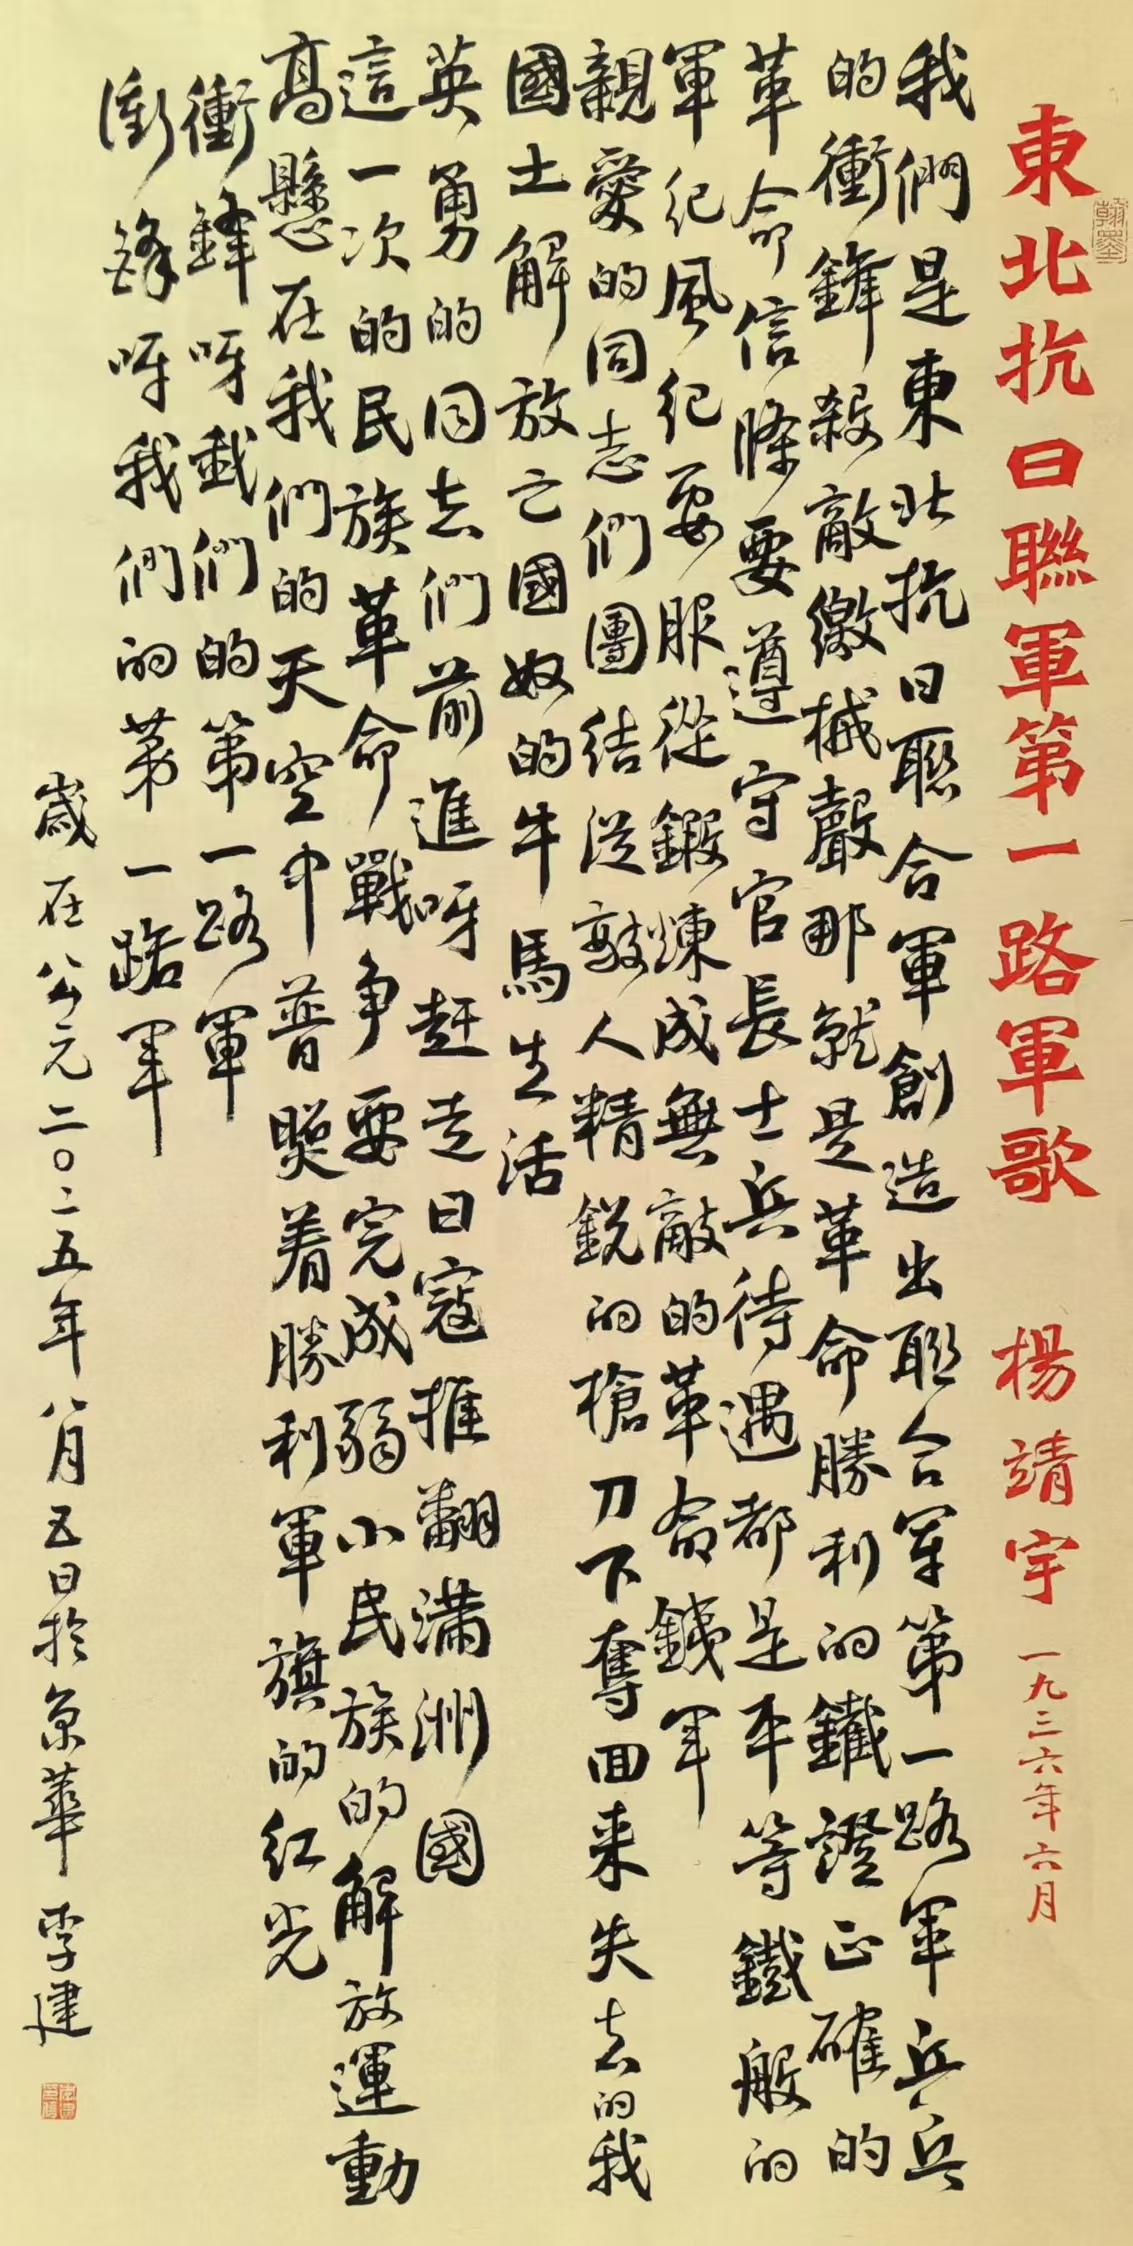 東北抗日聯軍第一路軍歌 楊靖宇 一九三六年六月
翰墨
我們是東北抗日聯合軍創造出聯合軍第一路軍兵兵
的衝鋒殺敵繳械聲那就是革命勝利的鐵證正確的
革命信條要遵守官長士兵待遇都是平等鐵般的
軍紀風紀要服從鍛煉成無敵的革命鐵軍
親愛的同志們團結從敵人精銳的槍刀下奪回来失去的我
國土解放亡國奴的牛馬生活
英勇的同志們前進呀赶走日寇推翻滿洲國
這一次的民族革命戰争要完成弱小民族的解放運動
高懸在我們的天空中普照着勝利軍旗的红光
衝鋒呀我們的第一路軍
衝鋒呀我們的第一路军
歲在公元二〇二五年八月五日於京華 李建